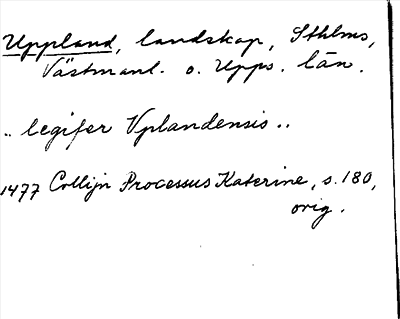 Uppland, landskap, Sthlms,
Västmanl. o. Upps. län.
.. legifer Vplandensis ..
1477 Collijn Processus Katerine, s. 180,
orig.